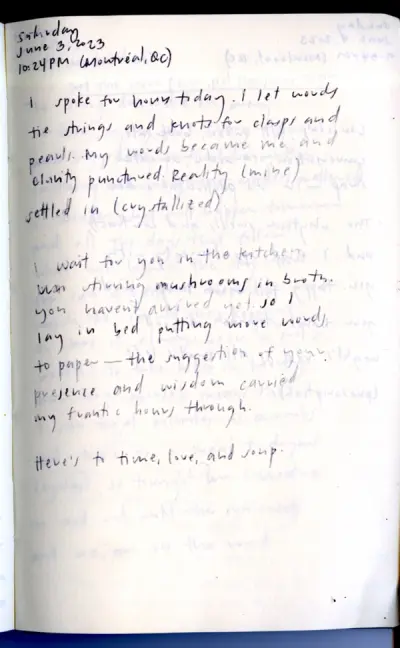 Saturday
June 3, 2023
10:24 PM (Montréal, QC)
I spoke for hours today. I let words
tie strings and knots for clasps and
pearls. My words became me and
clarity punctured. Reality (mine)
settled in (crystallized)
I wait for you in the kitchen
stirring mushrooms in broth.
You haven't arrived yet. So I
lay in bed putting more words
to paper — the suggestion of your
presence and wisdom carried
my frantic hours through.
Here's to time, love, and soup.